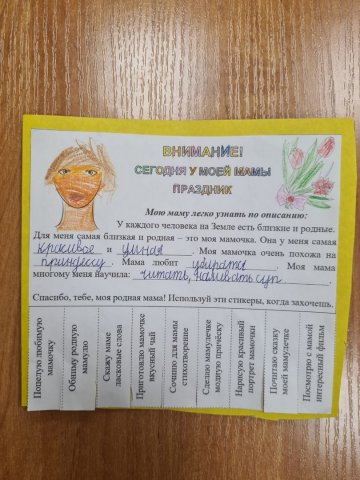 ВНИМАНИЕ!
СЕГОДНЯ У МОЕЙ МАМЫ
ПРАЗДНИК
Мою маму легко узнать по описанию:
У каждого человека на Земле есть близкие и родные.
Для меня самая близкая и родная – это моя мамочка. Она у меня самая
красивое и умная. Моя мамочка очень похожа на
принцессу. Мама любит убирать. Моя мама
многому меня научила: читать, наливать суп.
Спасибо, тебе, моя родная мама! Используй эти стикеры, когда захочешь.
Поцелую любимую
мамочку
Обниму родную
мамулю
Скажу маме
ласковые слова
Приготовлю мамочке
вкусный чай
Сочиню для мамы
стихотворение
Сделаю мамулечке
модную причёску
Нарисую красивый
портрет мамочки
Почитаю сказку
моей мамулечке
Посмотрю с мамой
интересный фильм